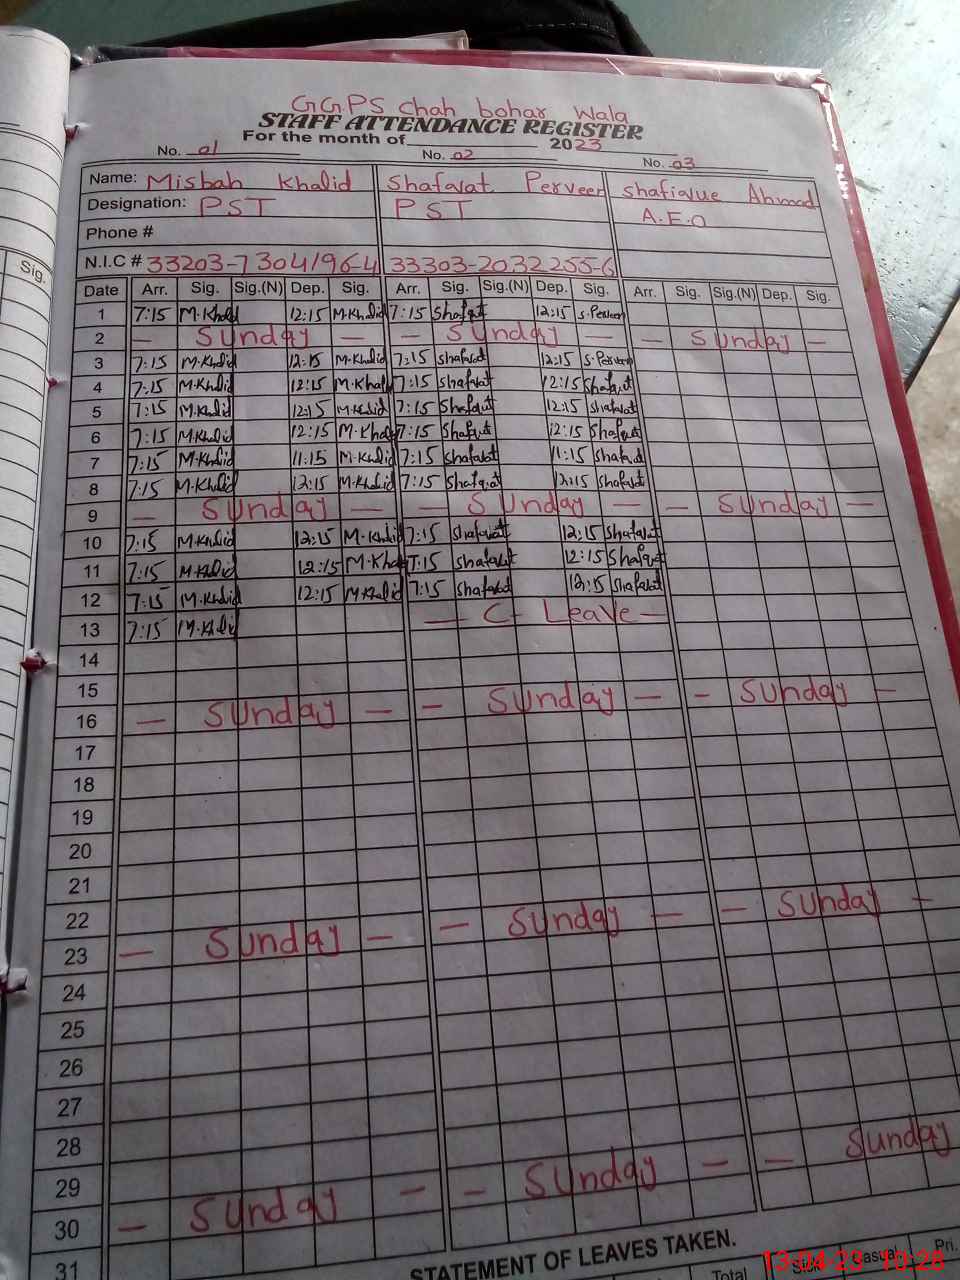 GGPS chah bohar wala
STAFF ATTENDANCE REGISTER
For the month of 2023
No. 01 No. 02 No. 03
Name: Misbah Khalid Shafavat Perveen Shafique Ahmad
Designation: PST PST A.E.O
Phone #
N.I.C # 33203-7304196-4 33303-2032255-6
Sig.
Date Arr. Sig. Sig.(N) Dep. Sig. Arr. Sig. Sig.(N) Dep. Sig. Arr. Sig. Sig.(N) Dep. Sig.
1 7:15 M.Khalid 12:15 M.Khalid 7:15 Shafqat 12:15 S.Perveen
2 — Sunday — — Sunday — — Sunday —
3 7:15 M.Khalid 12:15 M.Khalid 7:15 shafavat 12:15 S.Perveen
4 7:15 M.Khalid 12:15 M.Khalid 7:15 shafavat 12:15 Shafavat
5 7:15 M.Khalid 12:15 M.Khalid 7:15 Shafavat 12:15 Shafavat
6 7:15 M.Khalid 12:15 M.Khalid 7:15 Shafavat 12:15 Shafavat
7 7:15 M.Khalid 11:15 M.Khalid 7:15 shafavat 11:15 Shafavat
8 7:15 M.Khalid 12:15 M.Khalid 7:15 Shafavat 12:15 Shafavat
9 — Sunday — — Sunday — — Sunday —
10 7:15 M.Khalid 12:15 M.Khalid 7:15 shafavat 12:15 Shafavat
11 7:15 M.Khalid 12:15 M.Khalid 7:15 shafavat 12:15 Shafavat
12 7:15 M.Khalid 12:15 M.Khalid 7:15 shafavat 12:15 Shafavat
13 7:15 M.Khalid — C- Leave —
14
15
16 — Sunday — — Sunday — — Sunday —
17
18
19
20
21
22
23 — Sunday — — Sunday — — Sunday —
24
25
26
27
28
29
30 — Sunday — — Sunday — — Sunday
31
STATEMENT OF LEAVES TAKEN.
Total Sick Casual Pri.
13-04-23 10:28